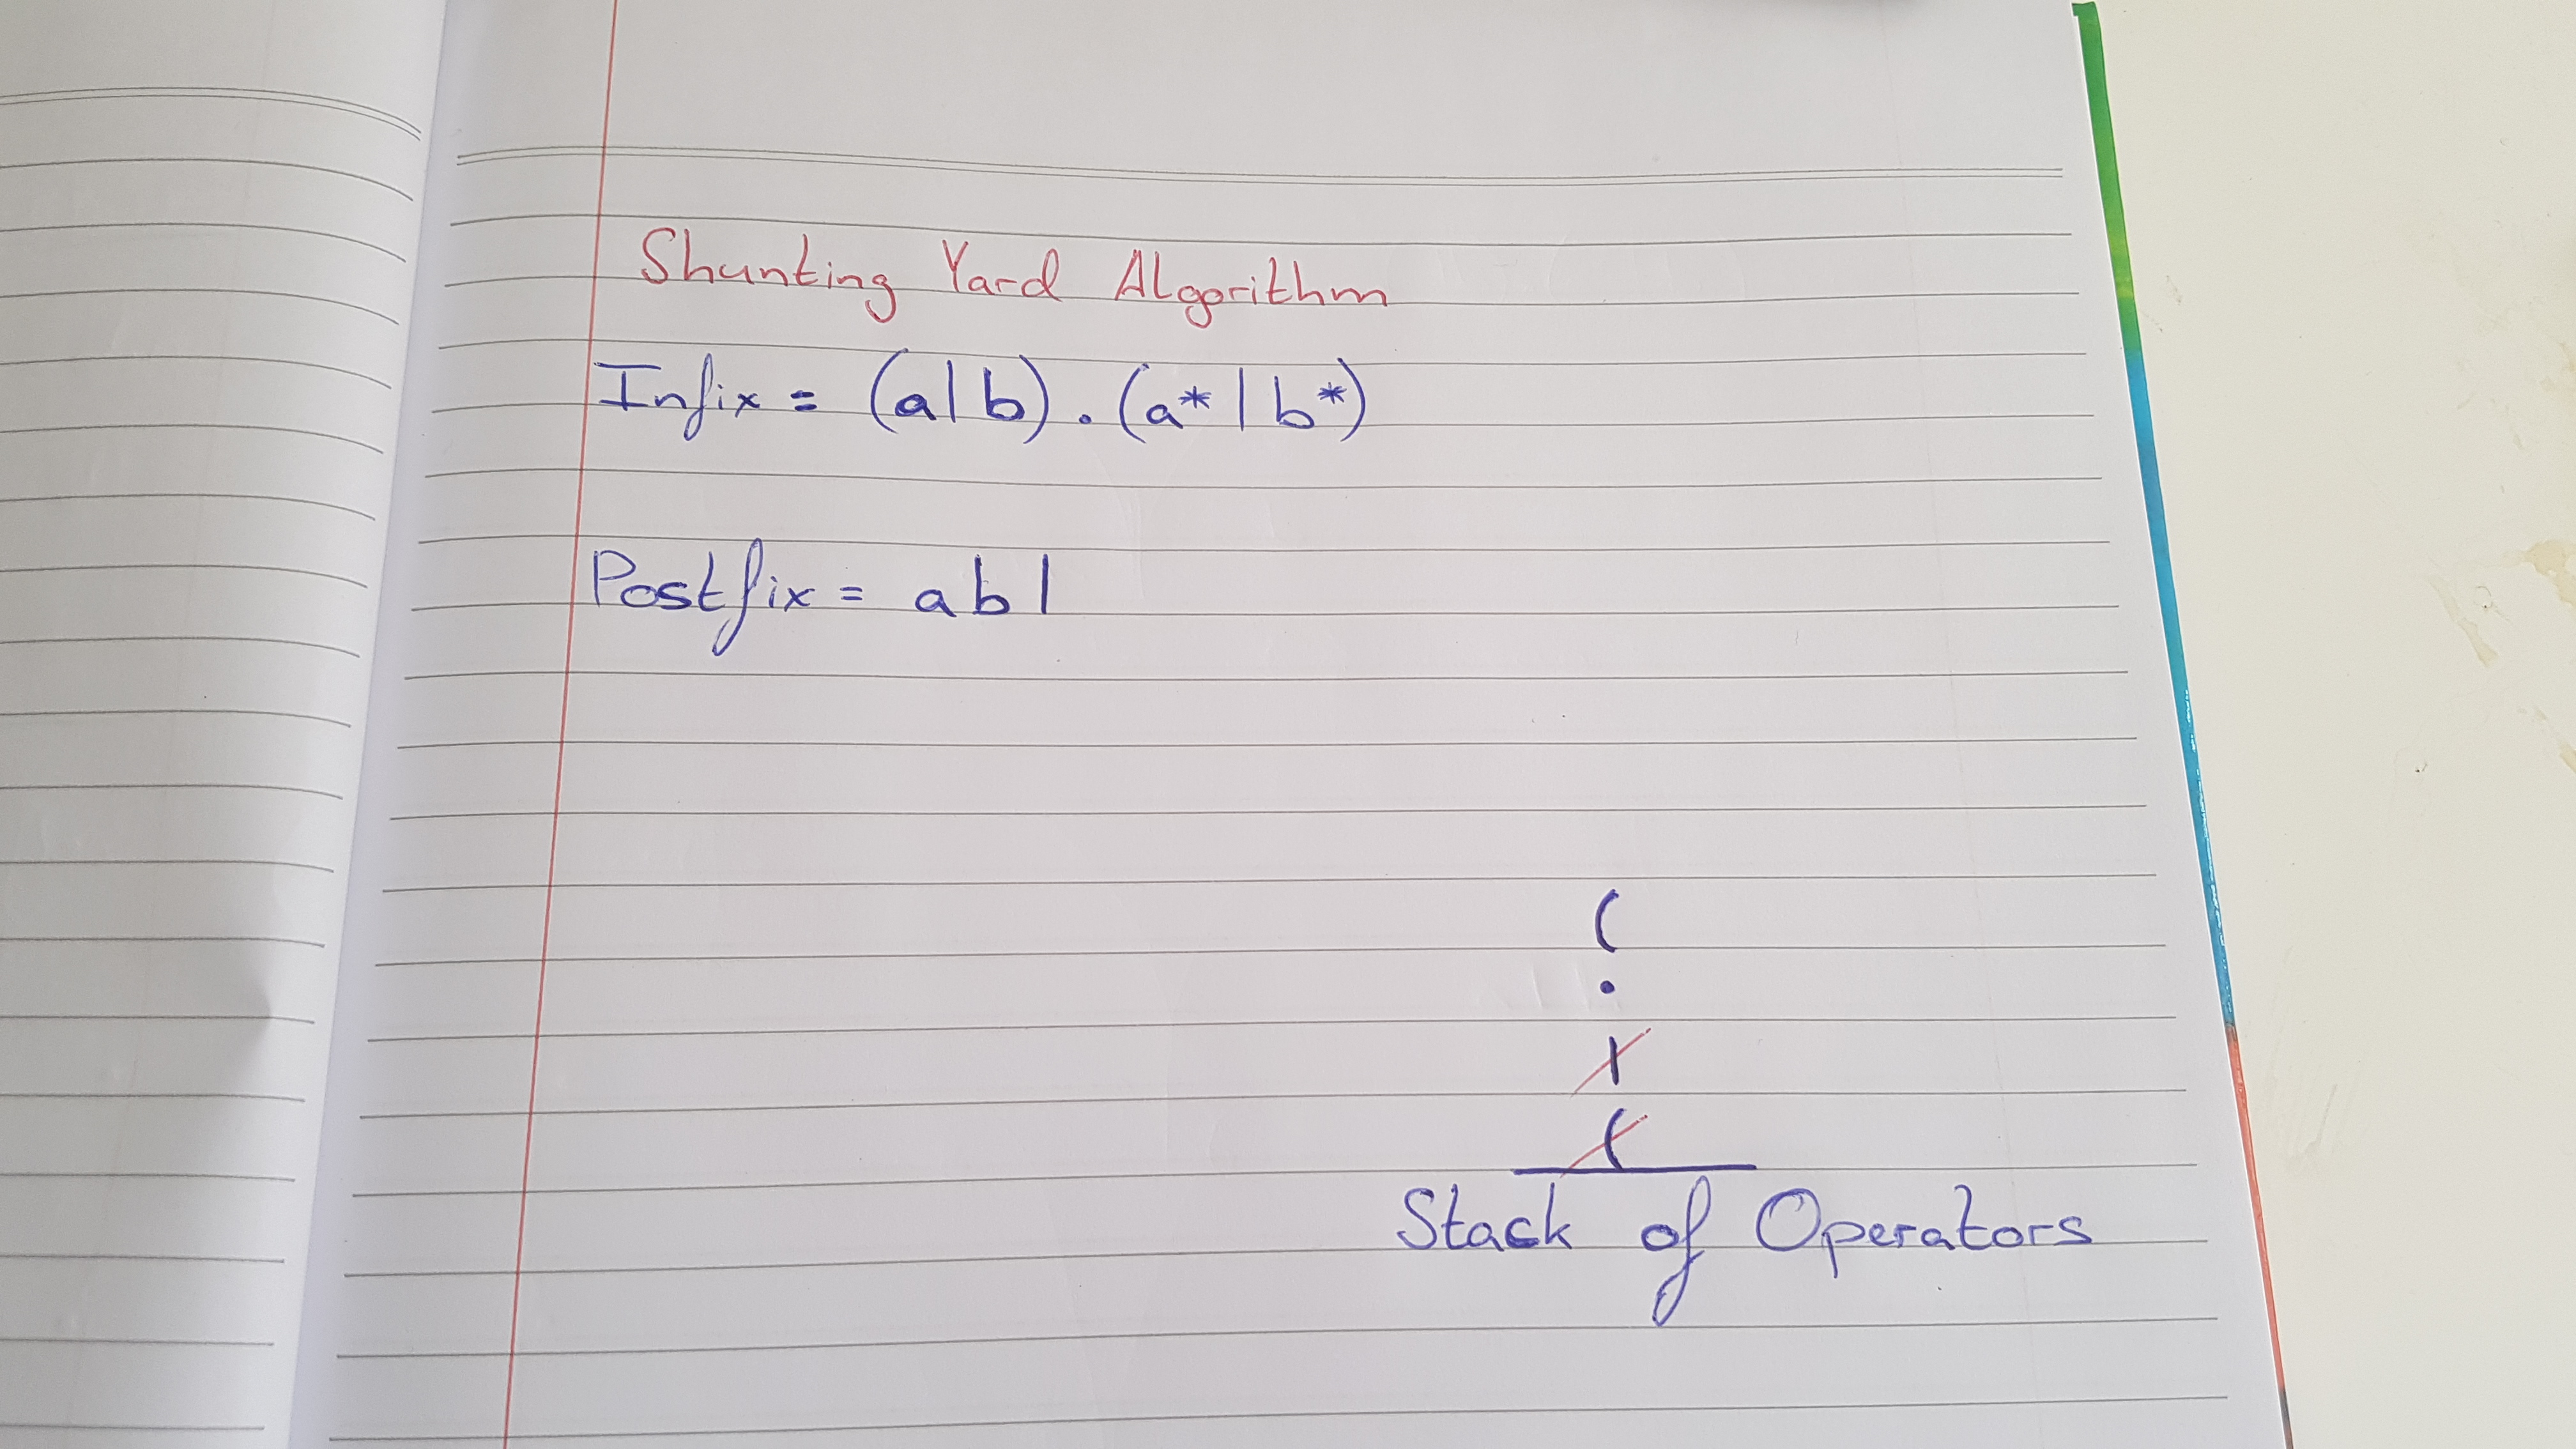 Shunting Yard Algorithm
Infix = (a|b).(a*|b*)
Postfix = ab|
(
.
|
(
Stack of Operators